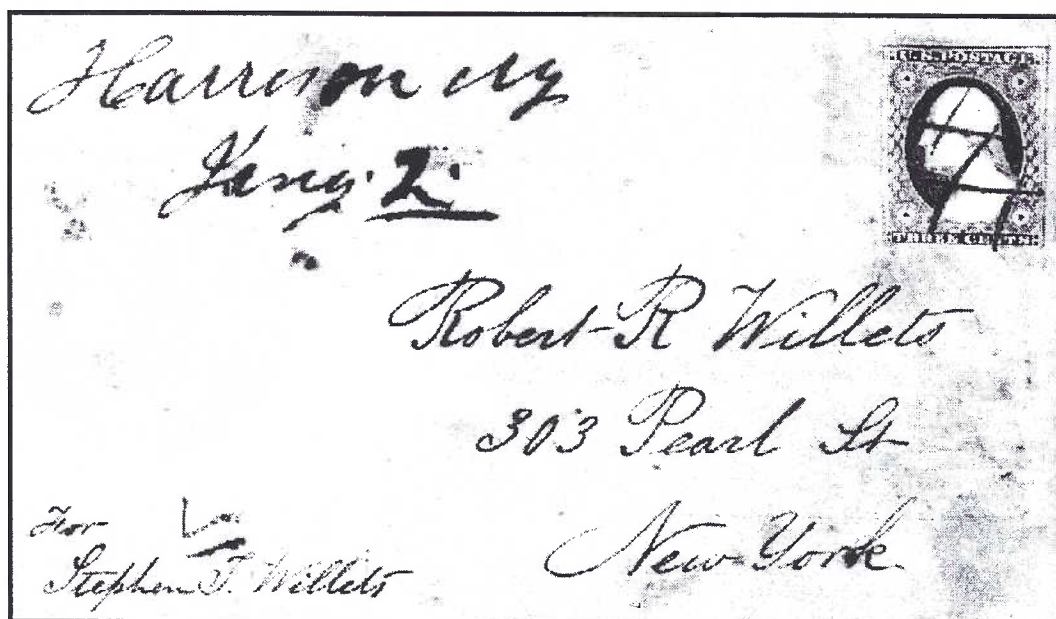 Harrison Ny
Jany. 2.
U.S. POSTAGE
THREE CENTS
Robert R Willets
303 Pearl St
New York
For
Stephen T. Willets